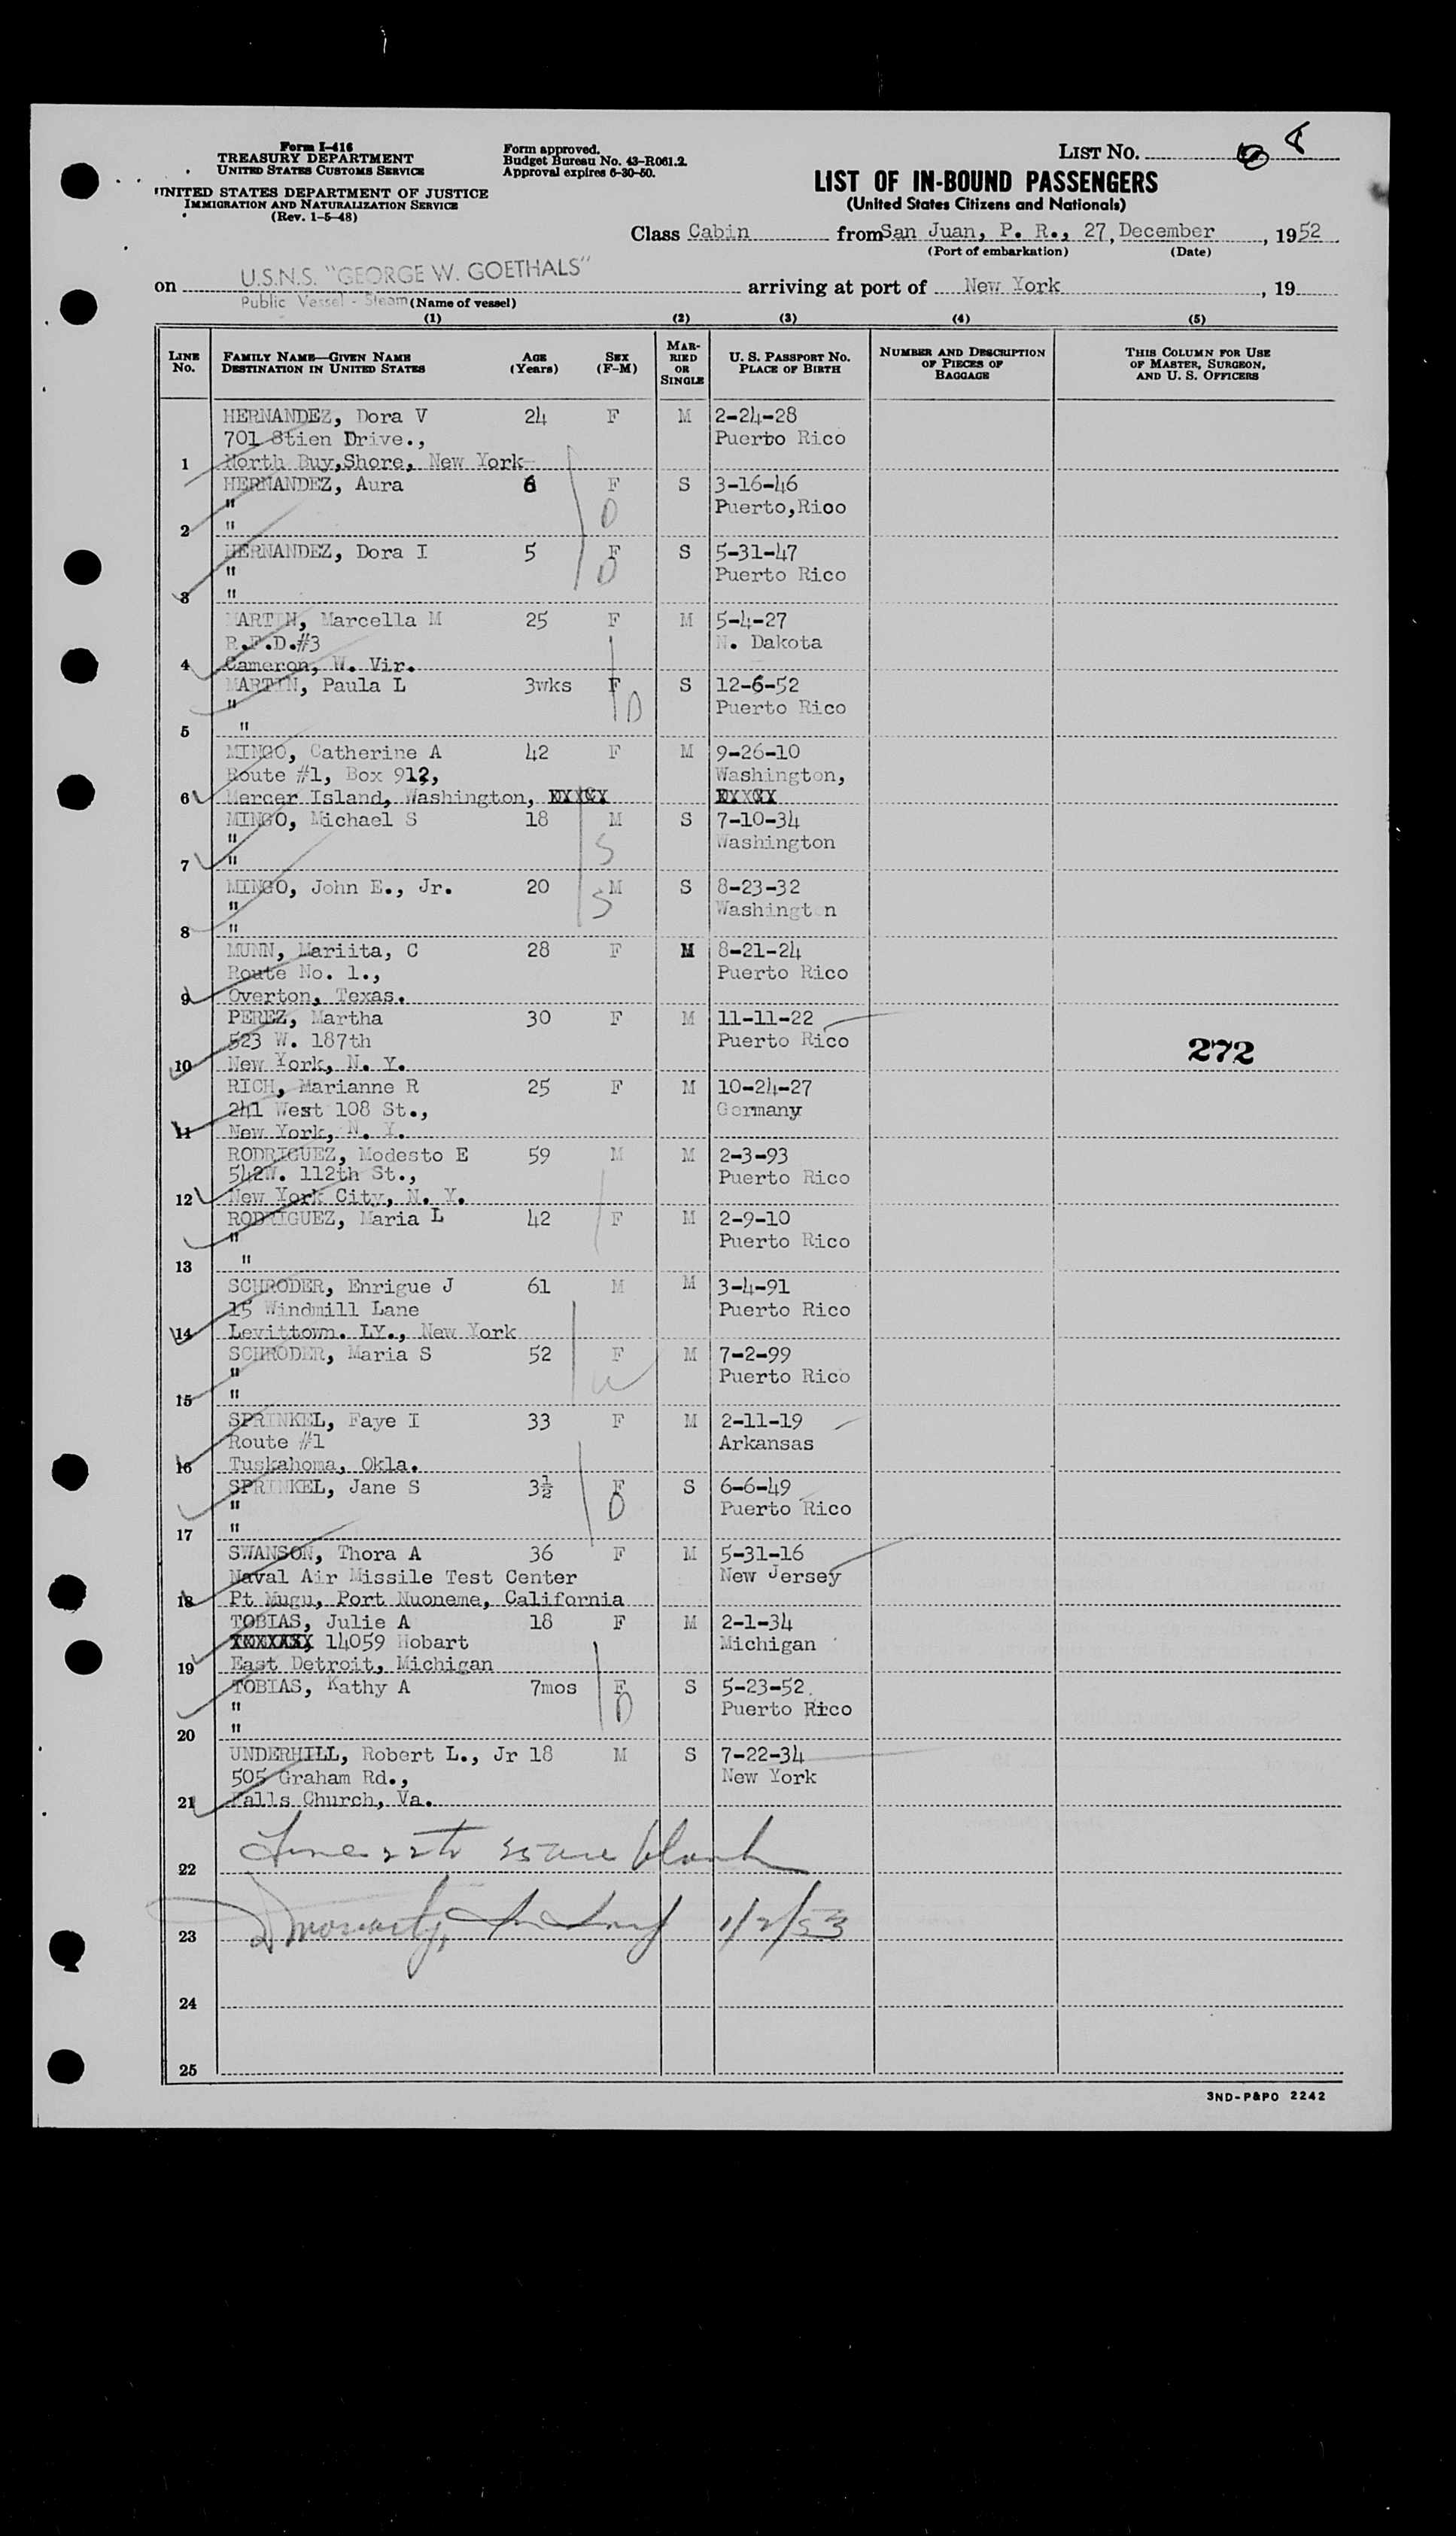 Form I-416
TREASURY DEPARTMENT
UNITED STATES CUSTOMS SERVICE
UNITED STATES DEPARTMENT OF JUSTICE
IMMIGRATION AND NATURALIZATION SERVICE
(Rev. 1-5-48)
Form approved.
Budget Bureau No. 43-R061.2.
Approval expires 6-30-50.
LIST NO. 8
LIST OF IN-BOUND PASSENGERS
(United States Citizens and Nationals)
Class Cabin from San Juan, P. R., 27, December, 1952
(Port of embarkation) (Date)
on U.S.N.S. "GEORGE W. GOETHALS" arriving at port of New York, 19
Public Vessel - Steam (Name of vessel)
(1) (2) (3) (4) (5)
LINE No. FAMILY NAME—GIVEN NAME DESTINATION IN UNITED STATES AGE (Years) SEX (F-M) MARRIED OR SINGLE U. S. PASSPORT NO. PLACE OF BIRTH NUMBER AND DESCRIPTION OF PIECES OF BAGGAGE THIS COLUMN FOR USE OF MASTER, SURGEON, AND U. S. OFFICERS
HERNANDEZ, Dora V 24 F M 2-24-28
701 Stien Drive., Puerto Rico
1 North Buy,Shore, New York
HERNANDEZ, Aura 6 F S 3-16-46
" D Puerto,Rico
2 "
HERNANDEZ, Dora I 5 F S 5-31-47
" D Puerto Rico
3 "
MARTIN, Marcella M 25 F M 5-4-27
R.F.D.#3 N. Dakota
4 Cameron, W. Vir.
MARTIN, Paula L 3wks F S 12-6-52
" D Puerto Rico
5 "
MINGO, Catherine A 42 F M 9-26-10
Route #1, Box 912, Washington,
6 Mercer Island, Washington,
MINGO, Michael S 18 M S 7-10-34
" S Washington
7 "
MINGO, John E., Jr. 20 M S 8-23-32
" S Washingt n
8 "
MUNN, Mariita, C 28 F M 8-21-24
Route No. 1., Puerto Rico
9 Overton, Texas.
PEREZ, Martha 30 F M 11-11-22
523 W. 187th Puerto Rico 272
10 New York, N. Y.
RICH, Marianne R 25 F M 10-24-27
241 West 108 St., Germany
11 New York, N. Y.
RODRIGUEZ, Modesto E 59 M M 2-3-93
542W. 112th St., Puerto Rico
12 New York City, N. Y.
RODRIGUEZ, Maria L 42 F M 2-9-10
" Puerto Rico
13 "
SCHRODER, Enrigue J 61 M M 3-4-91
15 Windmill Lane Puerto Rico
14 Levittown. LY., New York
SCHRODER, Maria S 52 F M 7-2-99
" W Puerto Rico
15 "
SPRINKEL, Faye I 33 F M 2-11-19
Route #1 Arkansas
16 Tuskahoma, Okla.
SPRINKEL, Jane S 3½ F S 6-6-49
" D Puerto Rico
17 "
SWANSON, Thora A 36 F M 5-31-16
Naval Air Missile Test Center New Jersey
18 Pt Mugu, Port Nuoneme, California
TOBIAS, Julie A 18 F M 2-1-34
14059 Hobart Michigan
19 East Detroit, Michigan
TOBIAS, Kathy A 7mos F S 5-23-52
" D Puerto Rico
20 "
UNDERHILL, Robert L., Jr 18 M S 7-22-34
505 Graham Rd., New York
21 Falls Church, Va.
22 Lines 22 to 25 are blank
23 1/2/53
24
25
3ND-P&PO 2242